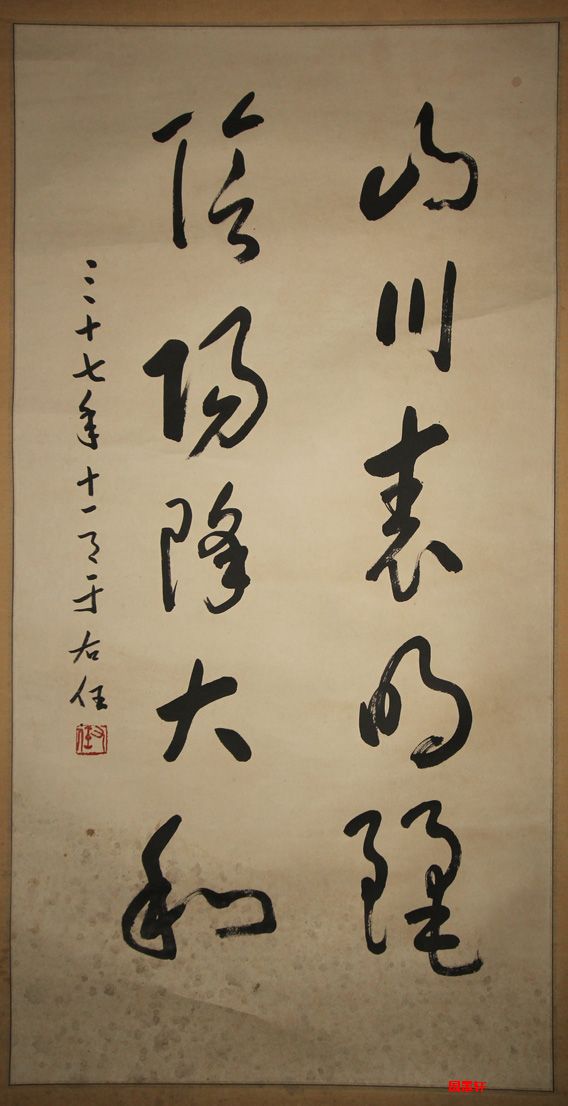 山川表明麗
陰陽降大和
三十七年十一月于右任
右任